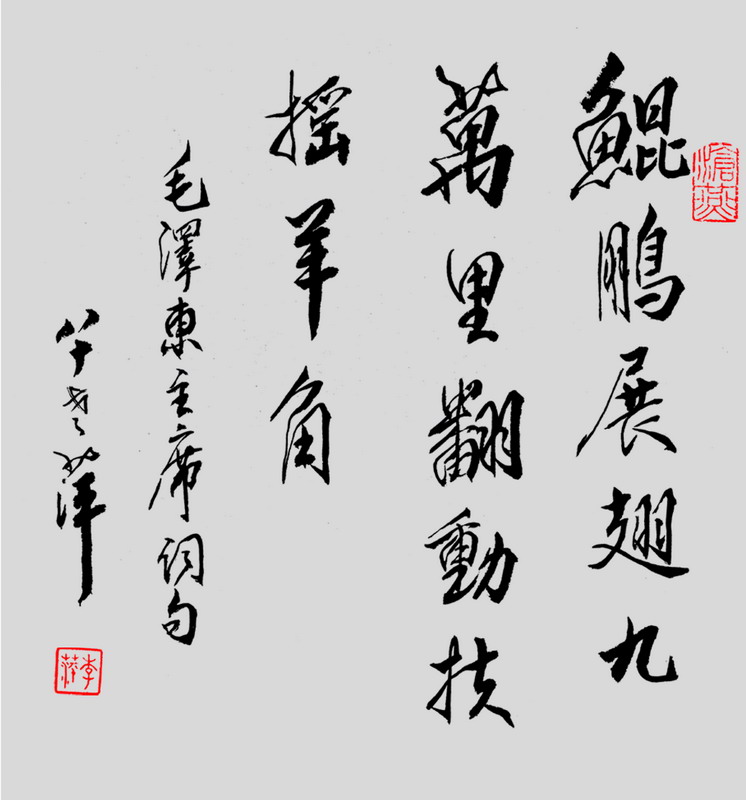 鯤鵬展翅九
萬里翻動扶
搖羊角
毛澤東主席詞句
八十
萍
李萍